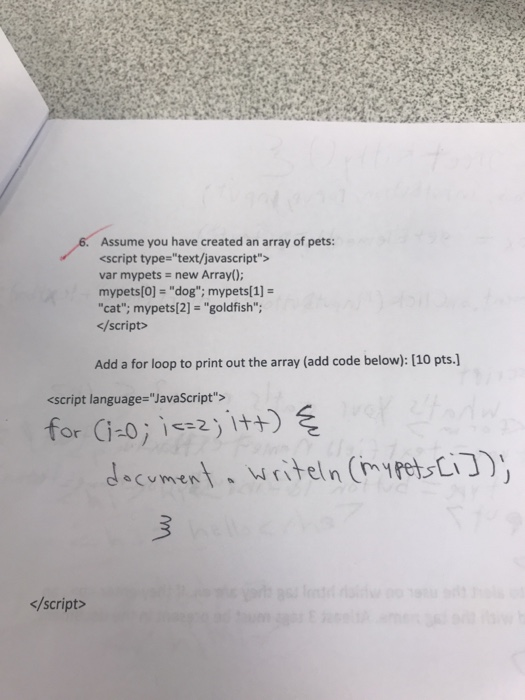 6. Assume you have created an array of pets:
<script type="text/javascript">
var mypets = new Array();
mypets[0] = "dog"; mypets[1] =
"cat"; mypets[2] = "goldfish";
</script>
Add a for loop to print out the array (add code below): [10 pts.]
<script language="JavaScript">
for (i=0; i<=2; i++) {
document.writeln(mypets[i]);
}
</script>